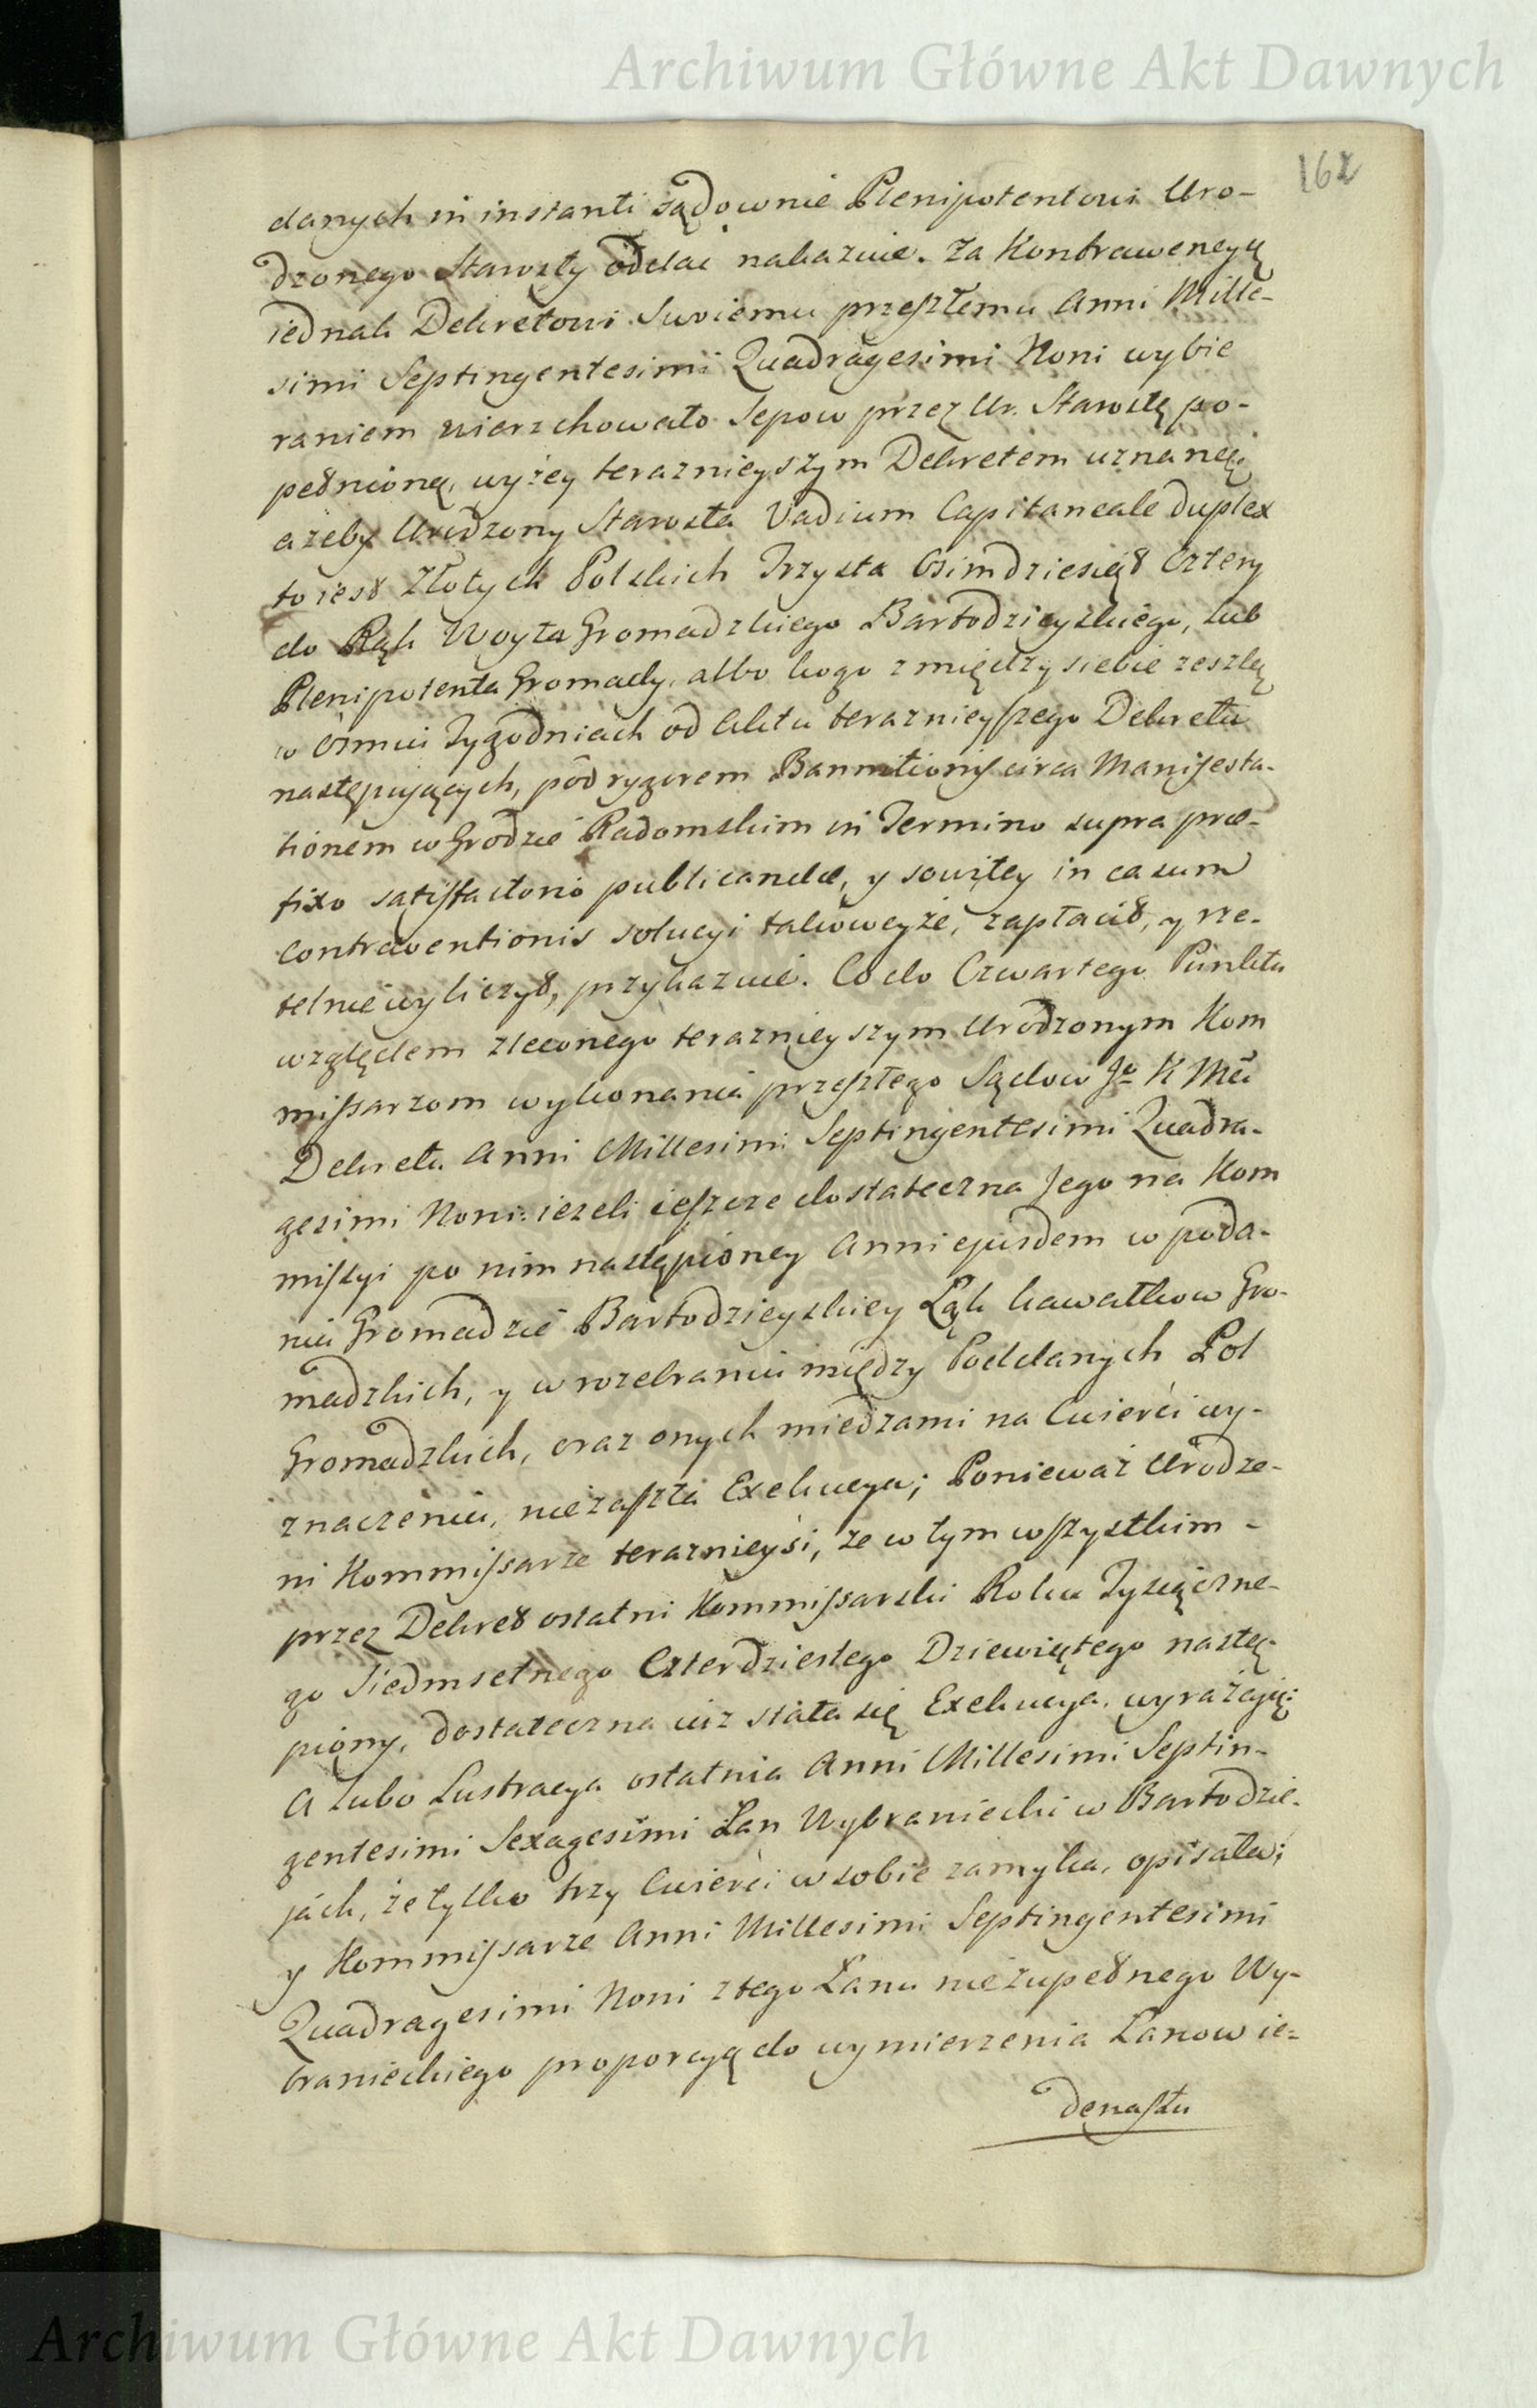 Archiwum Główne Akt Dawnych
162
danych in instanti sądownie Plenipotentowi Uro-
dzonego Starosty oddać nakazuie. Za Kontrawencyą
iednak Dekretowi Swoiemu przeszłemu Anni Mille-
simi Septingentesimi Quadragesimi Noni wybie
raniem wierzchowato Sepow przez Ur. Starostę po-
pełnioną, wyżey teraznieyszym Dekretem uznaną,
ażeby Urodzony Starosta Vadium Capitaneale duplex
to iest Złotych Polskich Trzysta Osimdziesiąt Cztery
do Rąk Woyta Gromadzkiego Bartodzieyskiego, lub
Plenipotenta Gromady, albo kogo z między siebie zeszlą
w ośmiu Tygodniach od Aktu teraznieyszego Dekretu
następuiących, pod rygorem Bannitionis circa Manifesta-
tionem w Grodzie Radomskim in Termino supra præ-
fixo satisfactorio publicandæ, y sowitey in casum
Contraventionis solucyi takoweyże, zapłacił, y rze-
telnie wyliczył, przykazuie. Co do Czwartego Punktu
względem zleconego teraznieyszym Urodzonym Kom
missarzom wykonania przeszłego Sądow Jo K Mci
Dekretu Anni Millesimi Septingentesimi Quadra-
gesimi Noni: ieżeli ieszcze dostateczna Jego na Kom
missyi po nim nastąpioney Anni ejusdem w poda-
niu Gromadzie Bartodzieyskiey Łąk kawałkow Gro-
madzkich, y w rozebraniu między Poddanych Pol
Gromadzkich, oraz onych miedzami na Cwierci wy-
znaczeniu, nie zaszła Exekucya; Ponieważ Urodze-
ni Kommissarze teraznieysi, że w tym wszystkim -
przez Dekret ostatni Kommissarski Roku Tysiączne-
go Siedmsetnego Czterdziestego Dziewiątego nastą-
piony, dostateczna iuż stała się Exekucya, wyrażaią:
A lubo Lustracya ostatnia Anni Millesimi Septin-
gentesimi Sexagesimi Łan Wybraniecki w Bartodzie-
jach, że tylko trzy Cwierci w sobie zamyka, opisała;
y Kommissarze Anni Millesimi Septingentesimi
Quadragesimi Noni z tego Łanu nie zupełnego Wy-
branieckiego proporcyą do wymierzenia Łanow ie=
denastu
Archiwum Główne Akt Dawnych